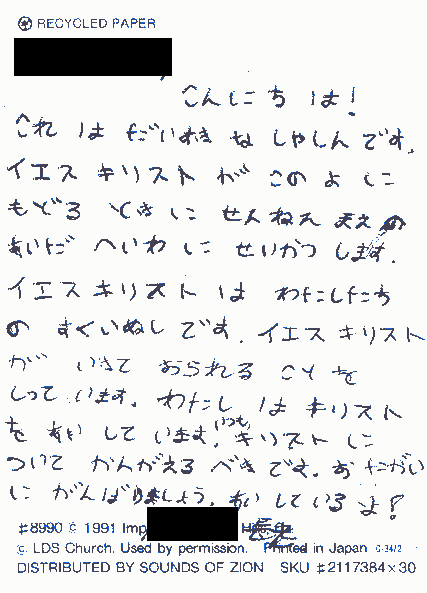 RECYCLED PAPER
こんにちは!
これはだいすきなしゃしんです。
イエスキリストがこのよに
もどるときにせんねんまえの
あいだへいわにせいかつします。
イエスキリストはわたしたち
のすくいぬしです。イエスキリスト
がいきておられることを
しっています。わたしはキリスト
をあいしています。いつもキリストに
ついてかんがえるべきです。おたがい
にがんばりましょう。あいしているよ!
#8990 © 1991 Imp
© LDS Church. Used by permission. Printed in Japan G-34/2
DISTRIBUTED BY SOUNDS OF ZION SKU #2117384×30